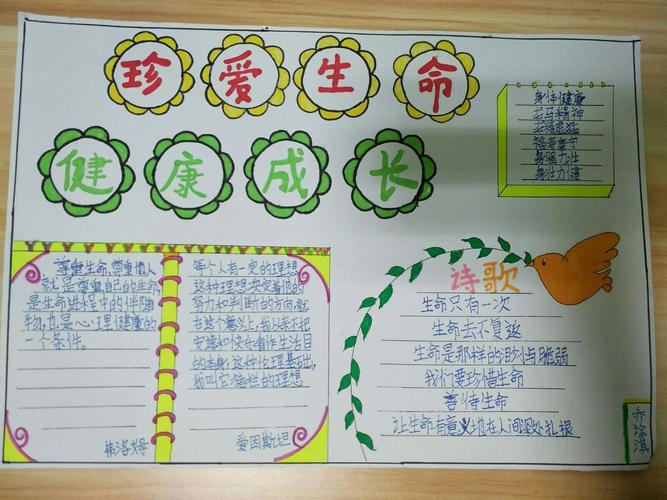 珍爱生命
健康成长
身体健康
龙马精神
福寿康宁
身强力壮
身壮力健
尊重生命、尊重他人
就是尊重自己的生命
是生命进程中的伴随
物,也是心理健康的
一个条件。
弗洛姆
每个人有一定的理想
这种理想决定着他的
努力和判断的方向,就
在这个意义上,我从来不把
安逸和快乐看作生活目
的本身,这种伦理基础,
我叫它猪栏的理想
爱因斯坦
诗歌
生命只有一次
生命去不复返
生命是那样的渺小与脆弱
我们要珍惜生命
善待生命
让生命有意义地在人间深处扎根